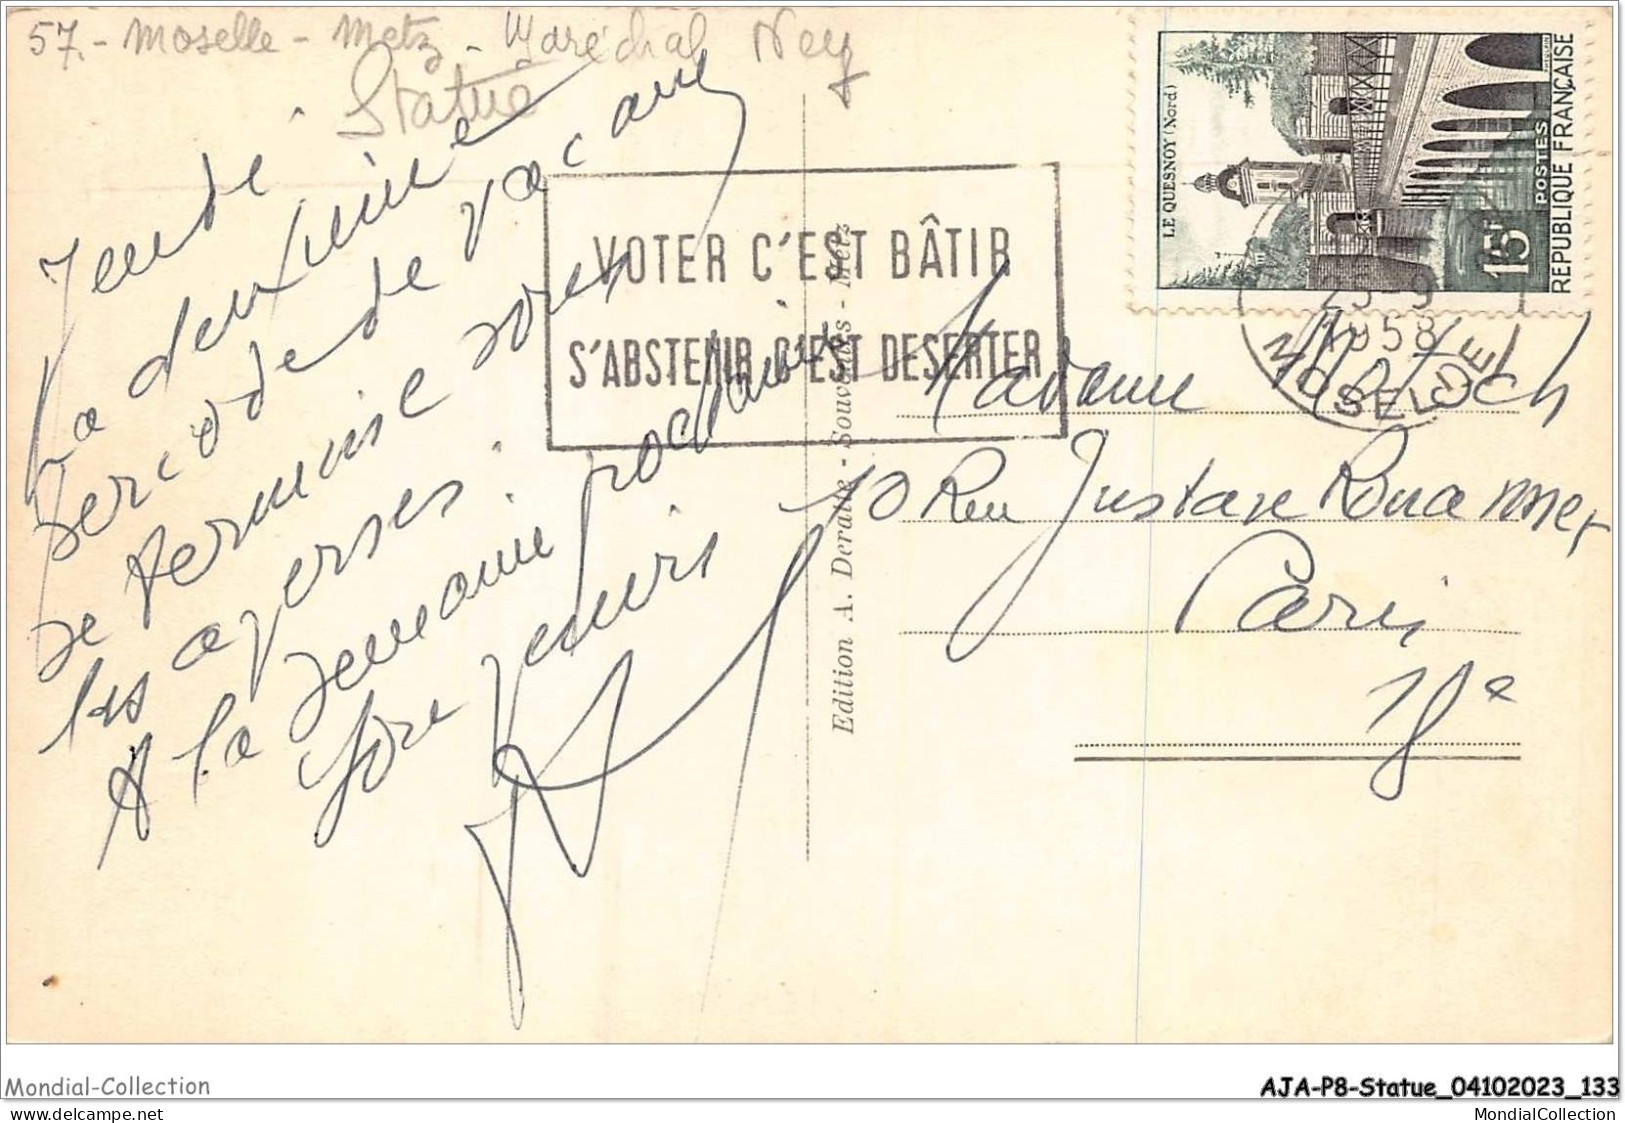 57.- Moselle - Metz - Maréchal Ney
Statue
Jeudi
La deuxième
période de vacances
se termine sous
les averses.
A la semaine prochaine
VOTER C'EST BÂTIR
S'ABSTENIR C'EST DESERTER
Edition A. Deraffe - Souvenirs - Metz
LE QUESNOY (Nord)
15F
POSTES
REPUBLIQUE FRANÇAISE
25-9
1958
MOSELLE
Madame
10 Rue Gustave Rouanner
Paris
18e
Mondial-Collection
AJA-P8-Statue_04102023_133
mondial-collection.delcampe.net
MondialCollection